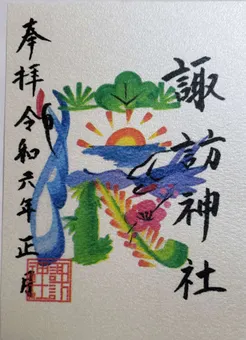 諏訪神社
奉拝 令和六年 正月